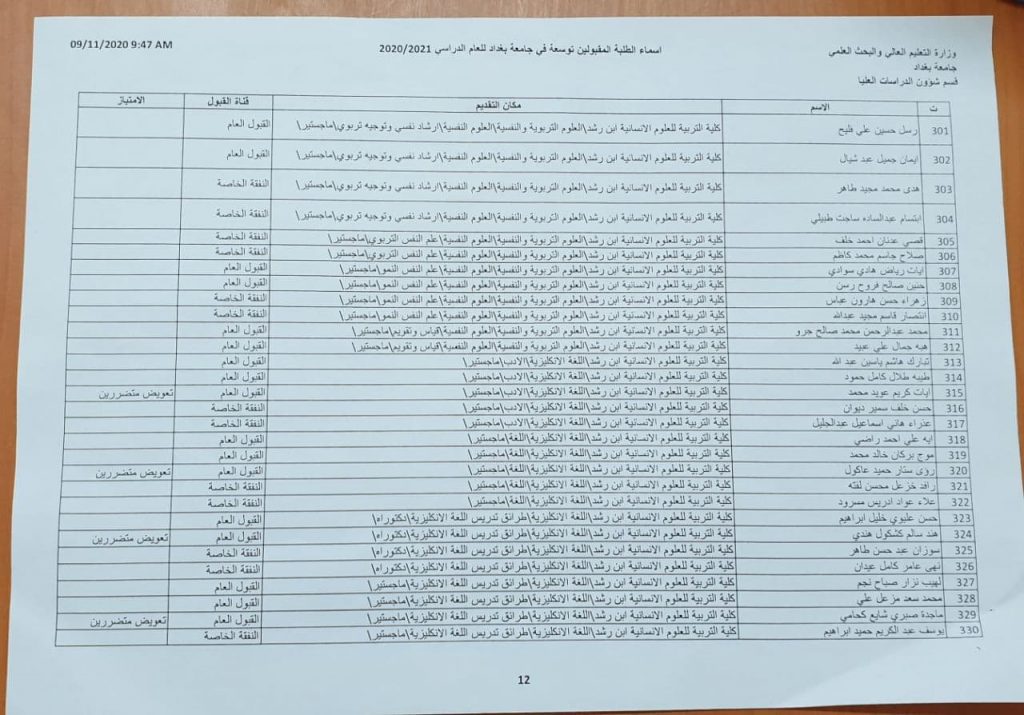 وزارة التعليم العالي والبحث العلمي
جامعة بغداد
قسم شؤون الدراسات العليا
اسماء الطلبة المقبولين توسعة في جامعة بغداد للعام الدراسي 2020/2021
09/11/2020 9:47 AM
ت الاسم مكان التقديم قناة القبول الامتياز
301 رسل حسين علي فليح كلية التربية للعلوم الانسانية ابن رشد\العلوم التربوية والنفسية\العلوم النفسية\ارشاد نفسي وتوجيه تربوي\ماجستير\ القبول العام
302 ايمان جميل عبد شيال كلية التربية للعلوم الانسانية ابن رشد\العلوم التربوية والنفسية\العلوم النفسية\ارشاد نفسي وتوجيه تربوي\ماجستير\ القبول العام
303 هدى محمد مجيد طاهر كلية التربية للعلوم الانسانية ابن رشد\العلوم التربوية والنفسية\العلوم النفسية\ارشاد نفسي وتوجيه تربوي\ماجستير\ النفقة الخاصة
304 ابتسام عبدالساده ساجت طبيلي كلية التربية للعلوم الانسانية ابن رشد\العلوم التربوية والنفسية\العلوم النفسية\ارشاد نفسي وتوجيه تربوي\ماجستير\ النفقة الخاصة
305 قصي عدنان احمد خلف كلية التربية للعلوم الانسانية ابن رشد\العلوم التربوية والنفسية\العلوم النفسية\علم النفس التربوي\ماجستير\ النفقة الخاصة
306 صلاح جاسم محمد كاظم كلية التربية للعلوم الانسانية ابن رشد\العلوم التربوية والنفسية\العلوم النفسية\علم النفس التربوي\ماجستير\ النفقة الخاصة
307 ايات رياض هادي سوادي كلية التربية للعلوم الانسانية ابن رشد\العلوم التربوية والنفسية\العلوم النفسية\علم النفس النمو\ماجستير\ القبول العام
308 حنين صالح فروح رسن كلية التربية للعلوم الانسانية ابن رشد\العلوم التربوية والنفسية\العلوم النفسية\علم النفس النمو\ماجستير\ القبول العام
309 زهراء حسن هارون عباس كلية التربية للعلوم الانسانية ابن رشد\العلوم التربوية والنفسية\العلوم النفسية\علم النفس النمو\ماجستير\ النفقة الخاصة
310 انتصار قاسم مجيد عبدالله كلية التربية للعلوم الانسانية ابن رشد\العلوم التربوية والنفسية\العلوم النفسية\علم النفس النمو\ماجستير\ النفقة الخاصة
311 محمد عبدالرحمن محمد صالح جرو كلية التربية للعلوم الانسانية ابن رشد\العلوم التربوية والنفسية\العلوم النفسية\قياس وتقويم\ماجستير\ القبول العام
312 هبه جمال علي عبيد كلية التربية للعلوم الانسانية ابن رشد\العلوم التربوية والنفسية\العلوم النفسية\قياس وتقويم\ماجستير\ القبول العام
313 تبارك هاشم ياسين عبد الله كلية التربية للعلوم الانسانية ابن رشد\اللغة الانكليزية\الادب\ماجستير\ القبول العام
314 طيبه طلال كامل حمود كلية التربية للعلوم الانسانية ابن رشد\اللغة الانكليزية\الادب\ماجستير\ القبول العام
315 ايات كريم عويد محمد كلية التربية للعلوم الانسانية ابن رشد\اللغة الانكليزية\الادب\ماجستير\ القبول العام تعويض متضررين
316 حسن خلف سمير ديوان كلية التربية للعلوم الانسانية ابن رشد\اللغة الانكليزية\الادب\ماجستير\ النفقة الخاصة
317 عذراء هاني اسماعيل عبدالجليل كلية التربية للعلوم الانسانية ابن رشد\اللغة الانكليزية\الادب\ماجستير\ النفقة الخاصة
318 ايه علي احمد راضي كلية التربية للعلوم الانسانية ابن رشد\اللغة الانكليزية\اللغة\ماجستير\ القبول العام
319 موج بركان خالد محمد كلية التربية للعلوم الانسانية ابن رشد\اللغة الانكليزية\اللغة\ماجستير\ القبول العام
320 رؤى ستار حميد عاكول كلية التربية للعلوم الانسانية ابن رشد\اللغة الانكليزية\اللغة\ماجستير\ القبول العام تعويض متضررين
321 رافد خزعل محسن لفته كلية التربية للعلوم الانسانية ابن رشد\اللغة الانكليزية\اللغة\ماجستير\ النفقة الخاصة
322 علاء عواد ادريس مسرود كلية التربية للعلوم الانسانية ابن رشد\اللغة الانكليزية\اللغة\ماجستير\ النفقة الخاصة
323 حسن عليوي خليل ابراهيم كلية التربية للعلوم الانسانية ابن رشد\اللغة الانكليزية\طرائق تدريس اللغة الانكليزية\دكتوراه\ القبول العام
324 هند سالم كشكول هندي كلية التربية للعلوم الانسانية ابن رشد\اللغة الانكليزية\طرائق تدريس اللغة الانكليزية\دكتوراه\ القبول العام تعويض متضررين
325 سوزان عبد حسن طاهر كلية التربية للعلوم الانسانية ابن رشد\اللغة الانكليزية\طرائق تدريس اللغة الانكليزية\دكتوراه\ النفقة الخاصة
326 نهى عامر كامل عيدان كلية التربية للعلوم الانسانية ابن رشد\اللغة الانكليزية\طرائق تدريس اللغة الانكليزية\دكتوراه\ النفقة الخاصة
327 لهيب نزار صباح نجم كلية التربية للعلوم الانسانية ابن رشد\اللغة الانكليزية\طرائق تدريس اللغة الانكليزية\ماجستير\ القبول العام
328 محمد سعد مزعل علي كلية التربية للعلوم الانسانية ابن رشد\اللغة الانكليزية\طرائق تدريس اللغة الانكليزية\ماجستير\ القبول العام
329 ماجدة صبري شايع كحامي كلية التربية للعلوم الانسانية ابن رشد\اللغة الانكليزية\طرائق تدريس اللغة الانكليزية\ماجستير\ القبول العام تعويض متضررين
330 يوسف عبد الكريم حميد ابراهيم كلية التربية للعلوم الانسانية ابن رشد\اللغة الانكليزية\طرائق تدريس اللغة الانكليزية\ماجستير\ النفقة الخاصة
12